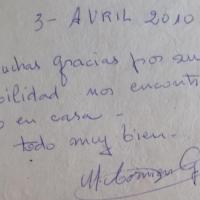 3- AVRIL 2010
uchas gracias por su
bilidad nos encont
en casa -
todo muy bien -